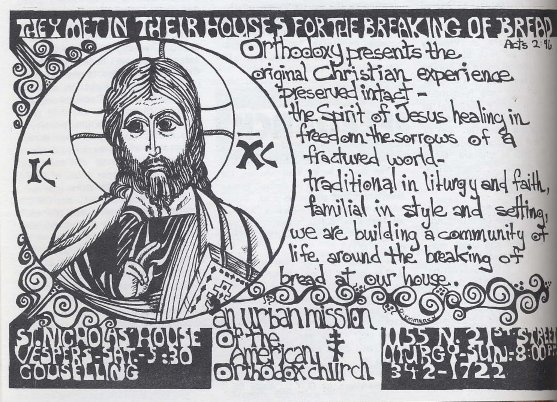 THEY MET IN THEIR HOUSES FOR THE BREAKING OF BREAD
Acts 2:46
Orthodoxy presents the
original Christian experience
preserved intact -
the Spirit of Jesus healing in
freedom the sorrows of a
fractured world -
traditional in liturgy and faith,
familial in style and setting,
we are building a community of
life around the breaking of
bread at our house..
IC
XC
ST. NICHOLAS HOUSE
VESPERS-SAT-5:30
COUSELLING
an urban mission
Of the
American
Orthodox church
1155 N. 21ST STREET
LITURGY-SUN-8:00
342-1722